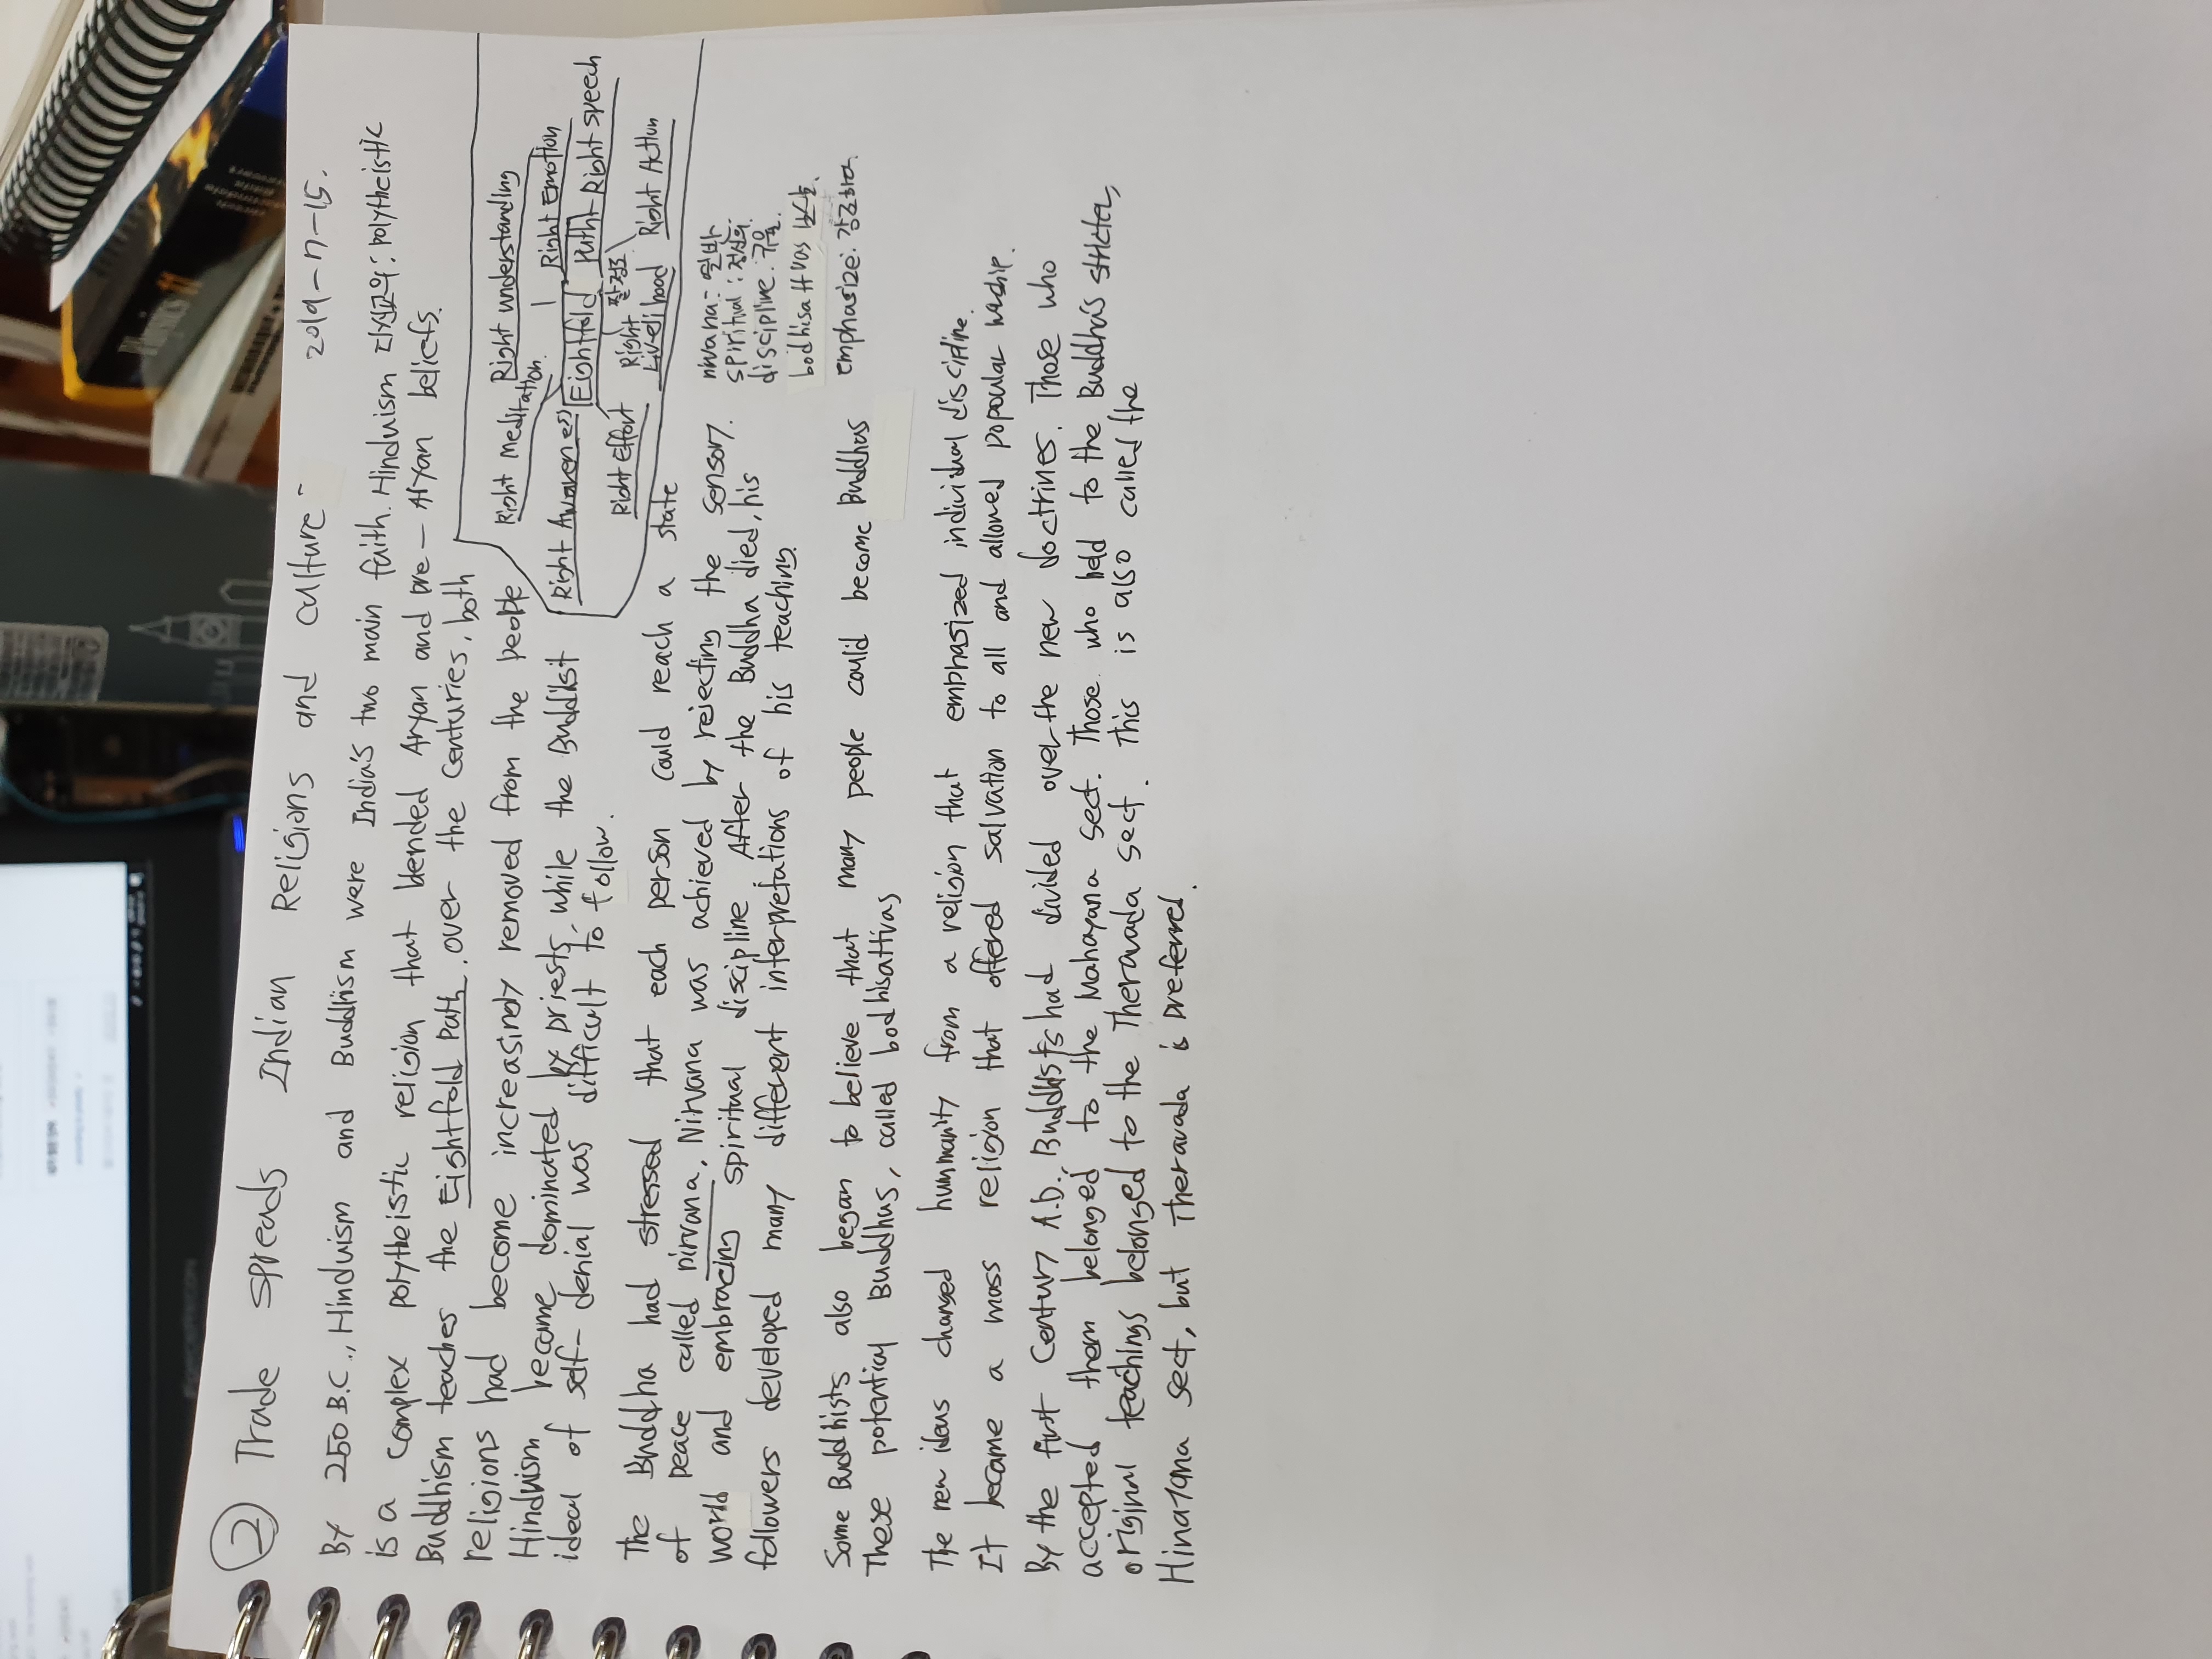 ② Trade spreads Indian Religions and culture -
2019-11-15.
By 250 B.C., Hinduism and Buddhism were India's two main faith. Hinduism 다신교의: polytheistic
is a complex polytheistic religion that blended Aryan and pre-Aryan beliefs.
Buddhism teaches the Eightfold path. over the centuries, both
religions had become increasingly removed from the people
Hinduism became dominated by priests, while the Buddist
ideal of self-denial was difficult to follow.
Right understanding
Right meditation.
Right Emotion
Right Awareness
Eightfold Path
Right speech
팔정도
Right Effort
Right Livelihood
Right Action
The Buddha had stressed that each person could reach a state
of peace called nirvana. Nirvana was achieved by rejecting the sensory.
world and embracing spiritual discipline. After the Buddha died, his
followers developed many different interpretations of his teaching.
nirvana: 열반
spiritual: 정신의.
discipline. 규율.
bodhisattvas 보살.
emphasize: 강조하다.
Some Buddhists also began to believe that many people could become Buddhas
These potential Buddhas, called bodhisattvas
The new ideas changed humanity from a religion that emphasized individual discipline.
It became a mass religion that offered salvation to all and allowed popoular worship.
By the first Century A.D., Buddists had divided over the new doctrines. Those who
accepted them belonged to the Mahayana sect. Those who held to the Buddha's stricter,
original teachings belonged to the Theravada sect. This is also called the
Hinayana sect, but Theravada is preferred.